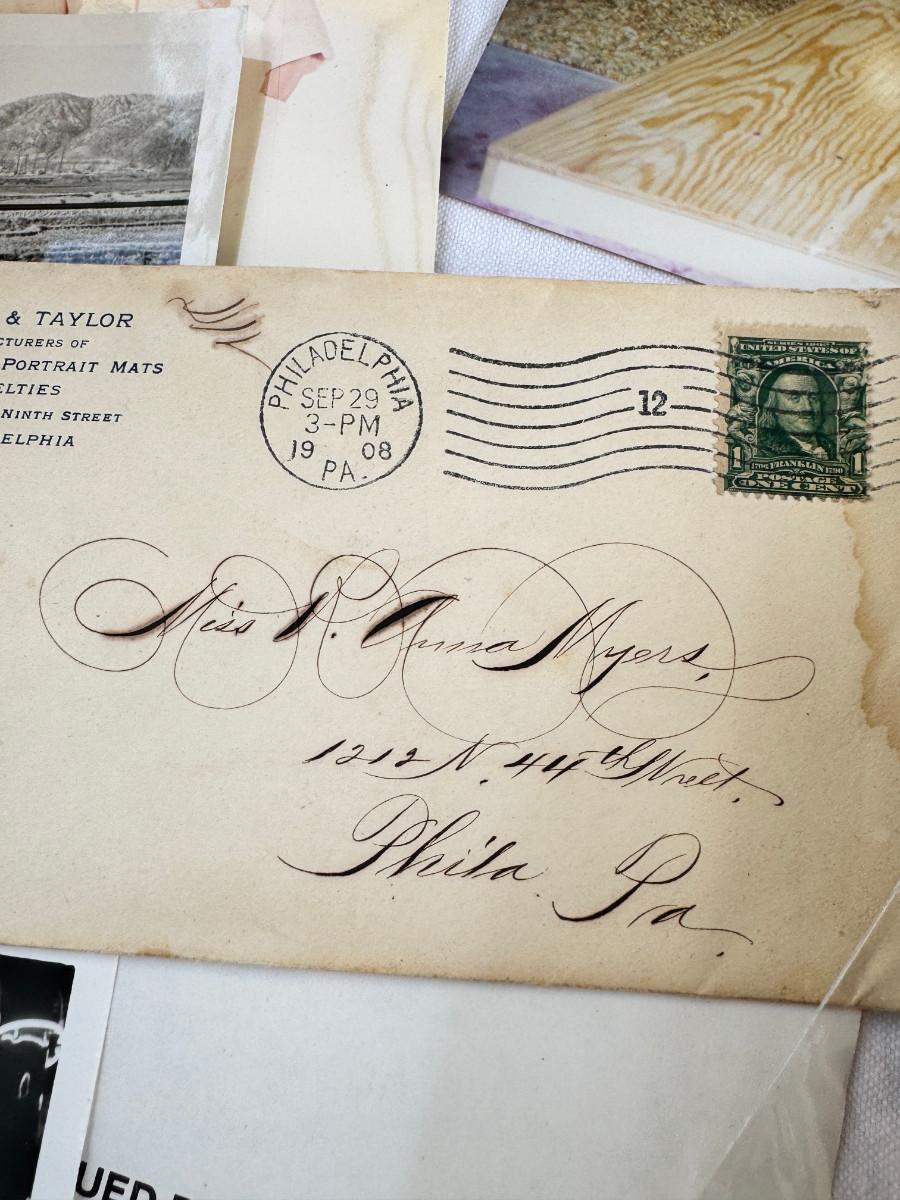 & TAYLOR
CTURERS OF
PORTRAIT MATS
ELTIES
NINTH STREET
ELPHIA
PHILADELPHIA
SEP 29
3-PM
19 08
PA.
12
SERIES 1902
UNITED STATES OF
AMERICA
1 1706 FRANKLIN 1790 1
POSTAGE
ONE CENT
Miss R. Anna Myers,
1212 N. 44th Street.
Phila Pa
UED